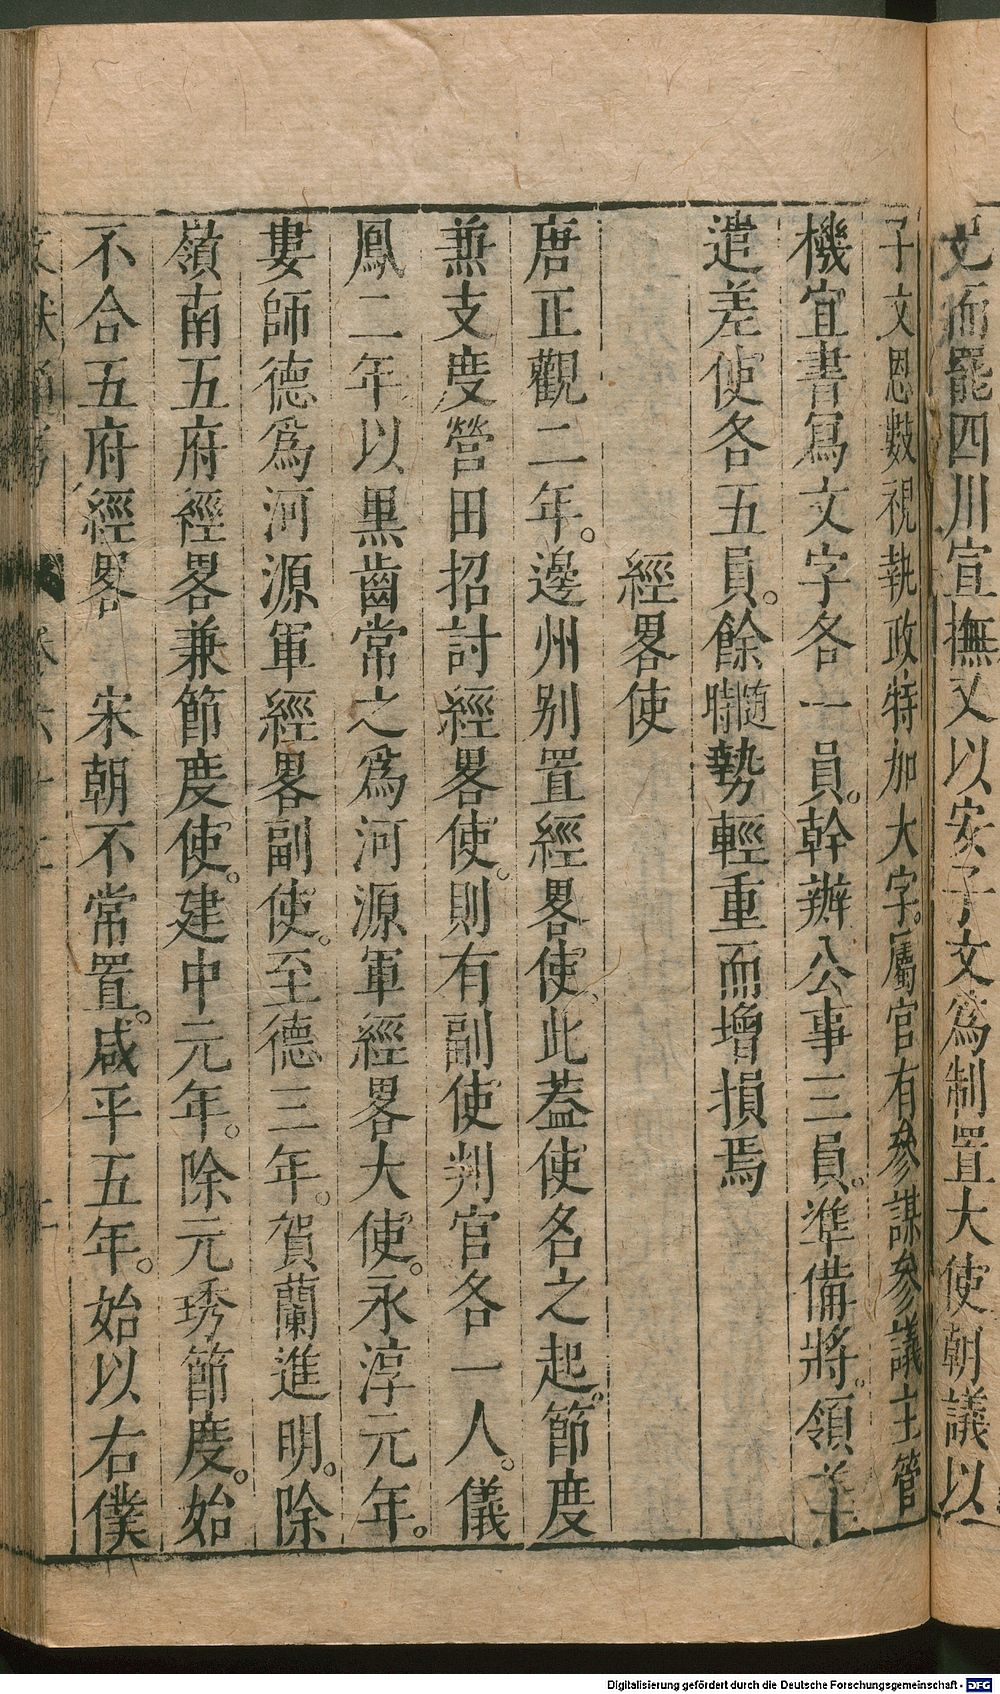 文而罷四川宣撫又以安子文爲制置大使朝議以
子文恩數視執政特加大字。屬官有參謀參議主管
機宜書寫文字各一員。幹辦公事三員。準備將。領差
遣差使各五員。餘隨時勢輕重而增損焉
經畧使
唐正觀二年。邊州别置經畧使、此葢使名之起。節度
兼支度營田招討經畧使。則有副使判官各一人。儀
鳳二年以黑齒常之爲河源軍經畧大使。永淳元年。
婁師德爲河源軍經畧副使。至德三年。賀蘭進明。除
嶺南五府經畧兼節度使。建中元年。除元琇節度。始
不合五府經畧 宋朝不常置。咸平五年。始以右僕
文獻通考 卷六十二 十
Digitalisierung gefördert durch die Deutsche Forschungsgemeinschaft - DFG